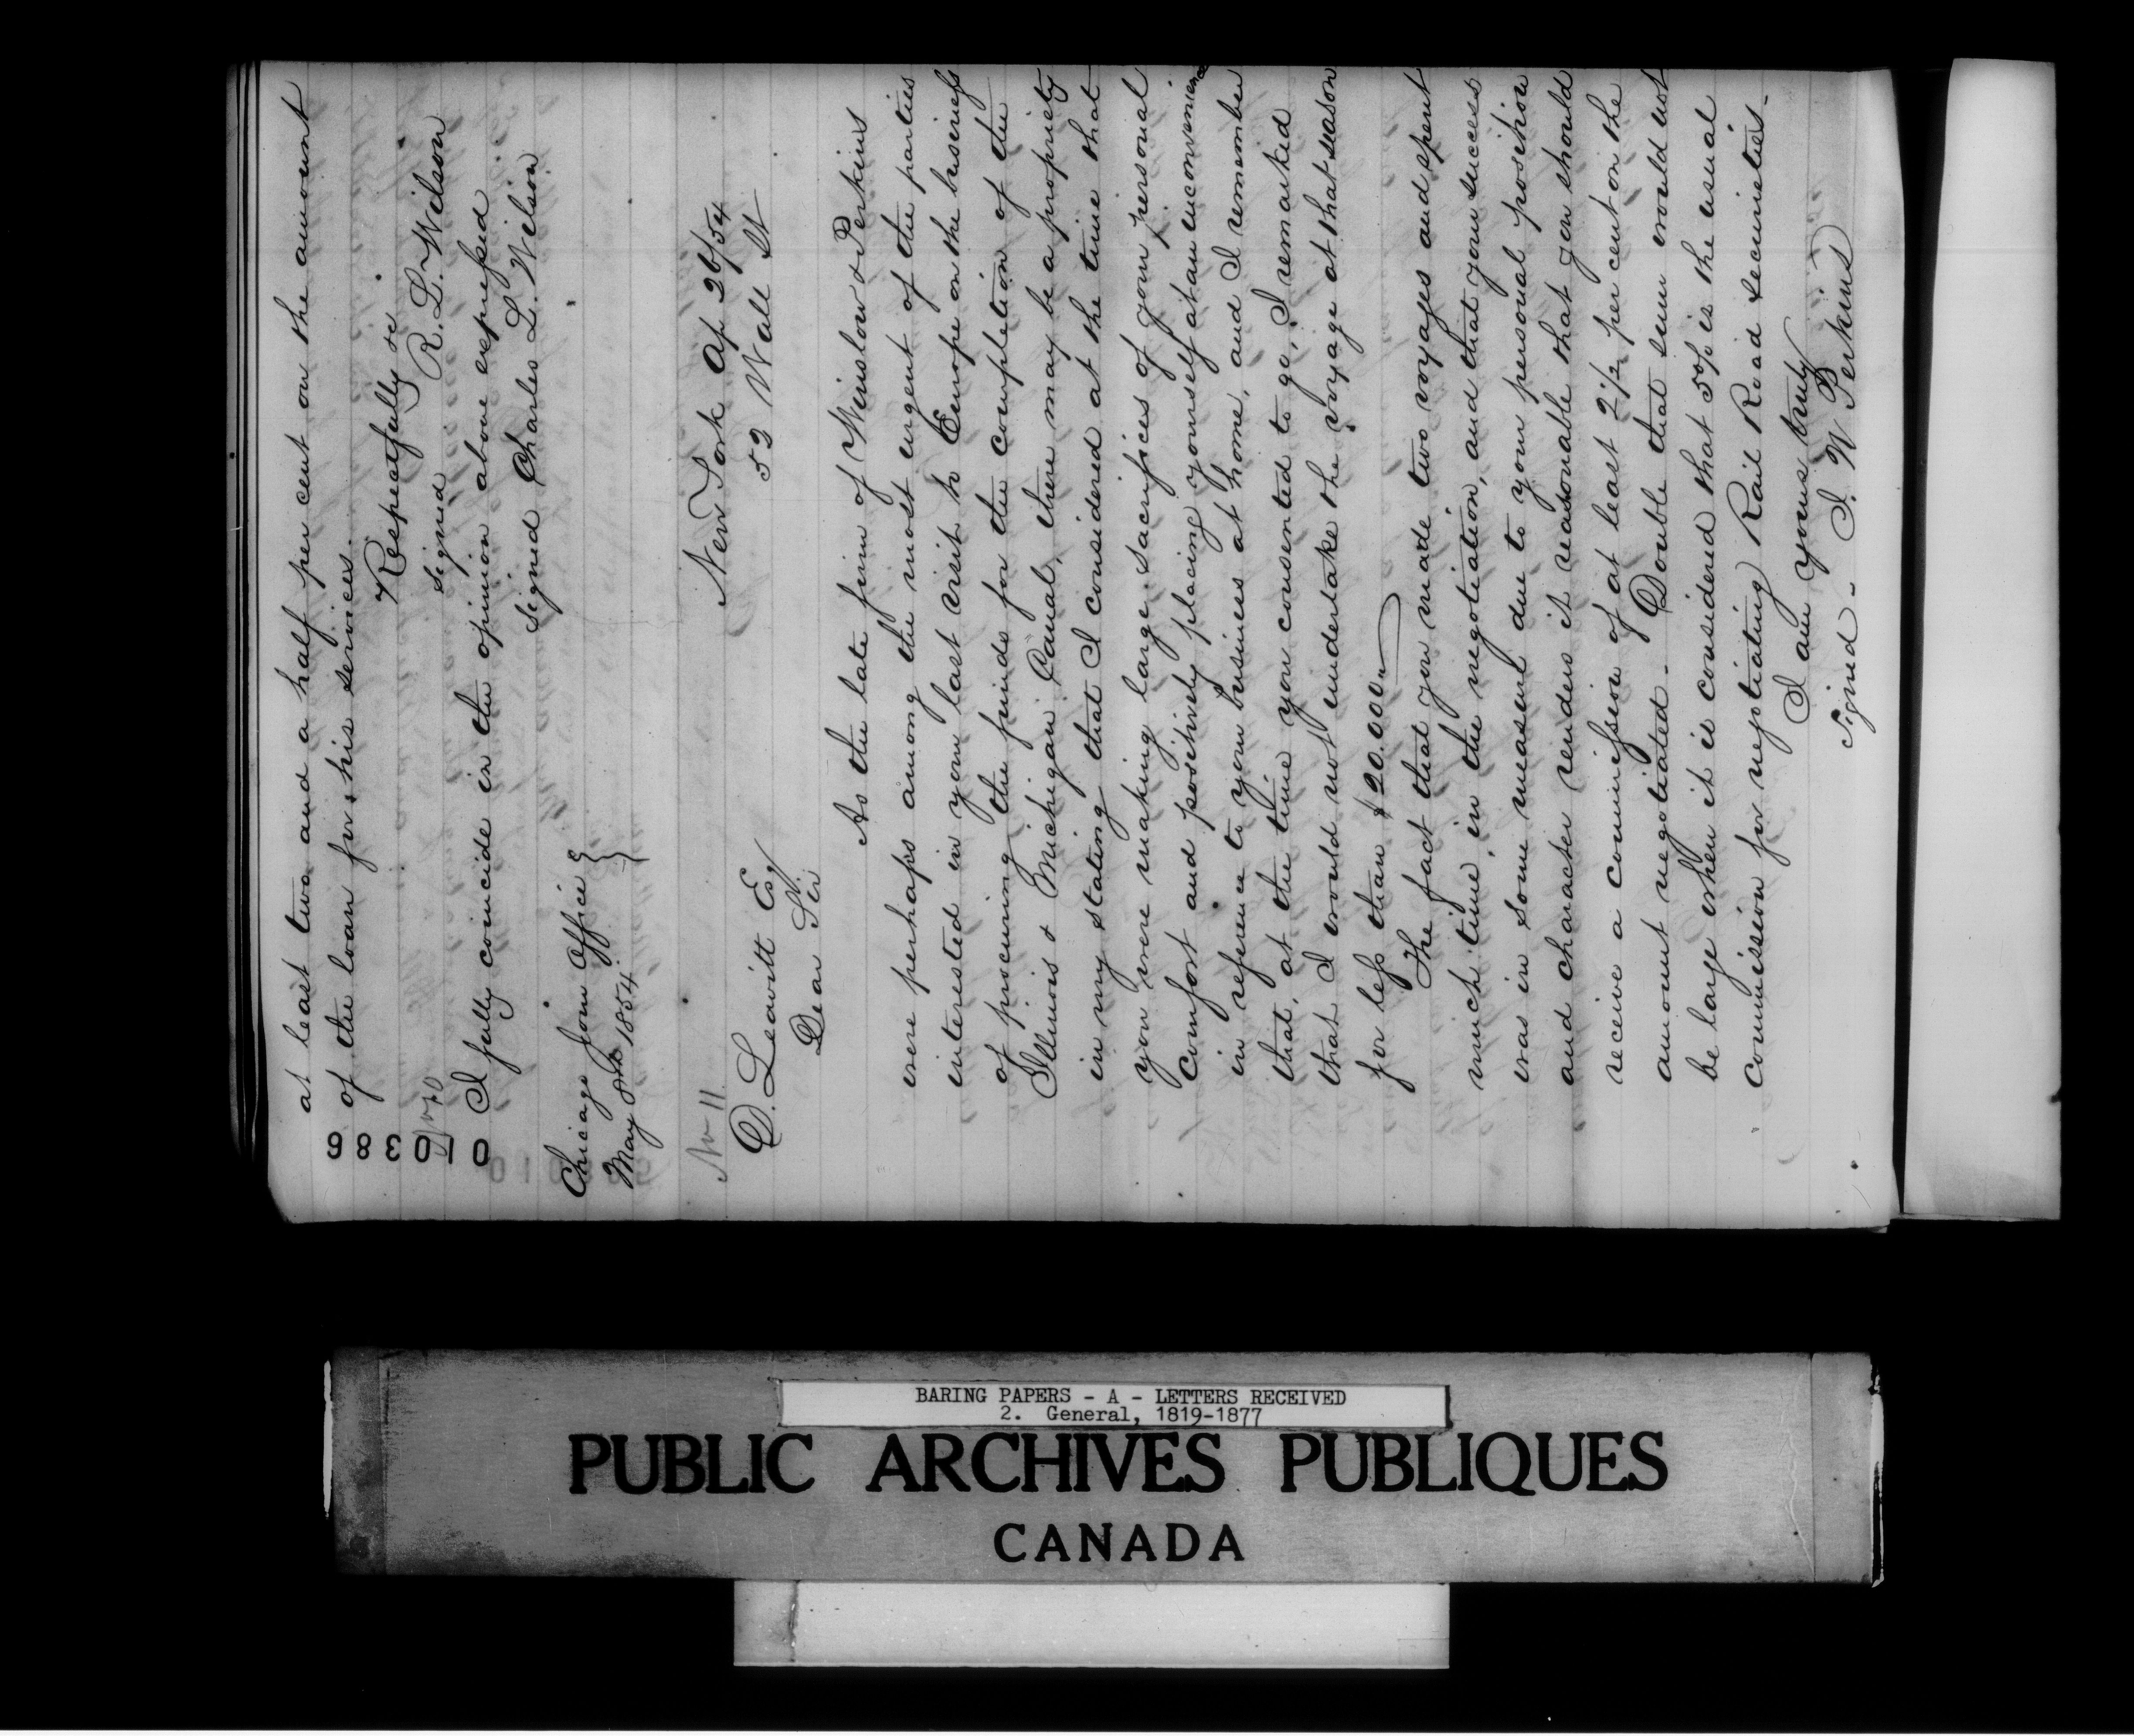 at least two and a half per cent on the amount
of the loan for his services.
Respectfully &c
signed R. L. Wilson
I fully coincide in the opinion above expressed
signed Charles L. Wilson
Chicago Jour Office
May 2nd 1854
010386
No 11
New York Ap 26/54
52 Wall St
D. Leavitt Esq
Dear Sir
As the late firm of Winslow & Perkins
were perhaps among the most urgent of the parties
interested in your last visit to Europe on the business
of procuring the funds for the completion of the
Illinois & Michigan Canal, there may be a propriety
in my stating that I considered at the time that
you were making large sacrifices of your personal
comfort and positively placing yourself at an inconvenience
in reference to your business at home, and I remember
that, at the time you consented to go, I remarked
that I would not undertake the voyage at that season
for less than $20.000.
The fact that you made two voyages and spent
much time in the negotiation, and that your success
was in some measure due to your personal position
and character renders it reasonable that you should
receive a commission of at least 2 1/2 per cent on the
amount negotiated. Double that sum would not
be large when it is considered that 5% is the usual
commission for negotiating Rail Road securities.
I am yours truly
signed. J. W Perkins
BARING PAPERS - A - LETTERS RECEIVED
2. General, 1819-1877
PUBLIC ARCHIVES PUBLIQUES
CANADA